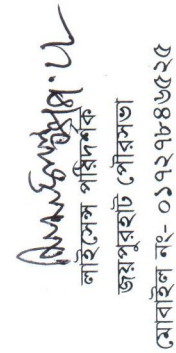 লাইসেন্স পরিদর্শক
জয়পুরহাট পৌরসভা
মোবাইল নং- ০১৭২৭৮৪৬৫২৫